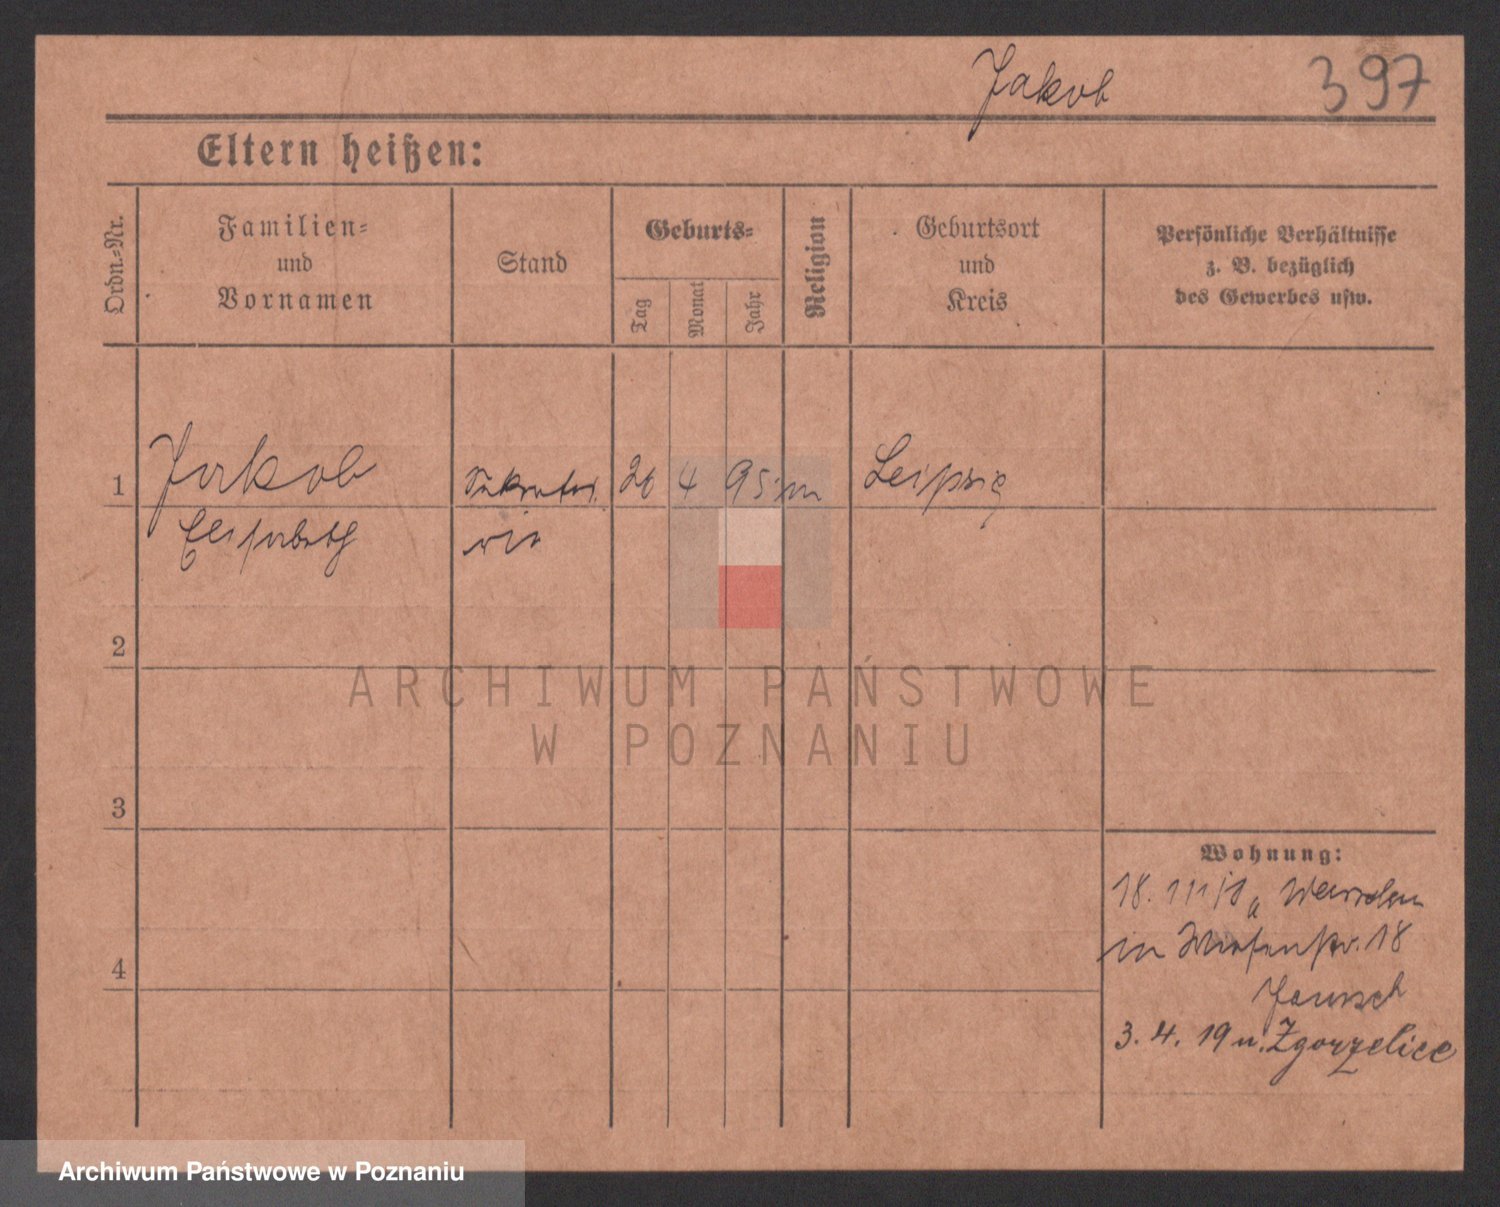 Jakob
397
Eltern heißen:
Ordn.-Nr.
Familien-
und
Vornamen
Stand
Geburts-
Tag
Monat
Jahr
Religion
Geburtsort
und
Kreis
Persönliche Verhältnisse
z. B. bezüglich
des Gewerbes usw.
1
Jakob
Elisabeth
Sekretä-
rin
26 4 95
Leipzig
2
3
4
Wohnung:
18.
in 18
3. 4. 19 n. Zgorzelice
ARCHIWUM PAŃSTWOWE
W POZNANIU
Archiwum Państwowe w Poznaniu